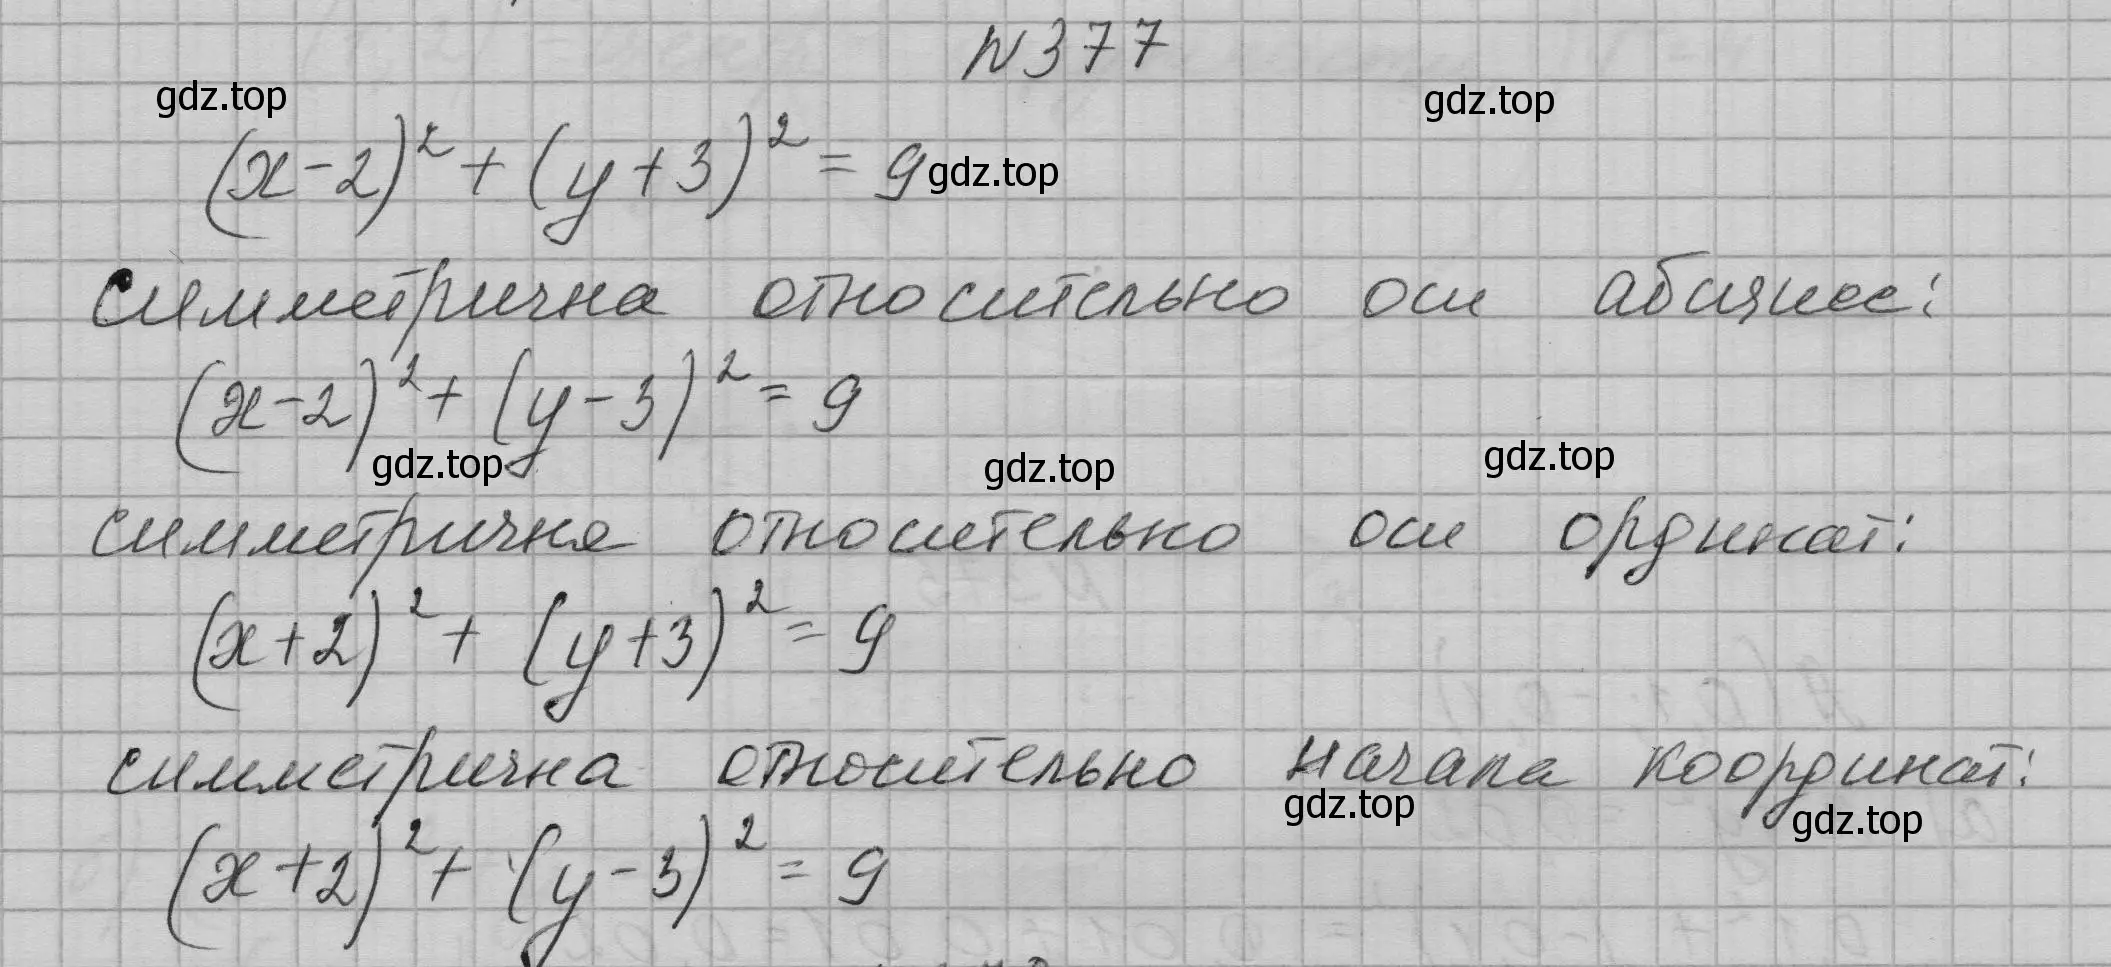 №377
gdz.top
gdz.top
(x-2)² + (y+3)² = 9
gdz.top
симметрична относительно оси абсцисс:
(x-2)² + (y-3)² = 9
gdz.top
gdz.top
gdz.top
симметрична относительно оси ординат:
(x+2)² + (y+3)² = 9
симметрична относительно начала координат:
gdz.top
gdz.top
(x+2)² + (y-3)² = 9